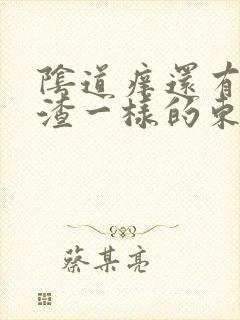 陰道痒還有
渣一樣的東
蔡某亮